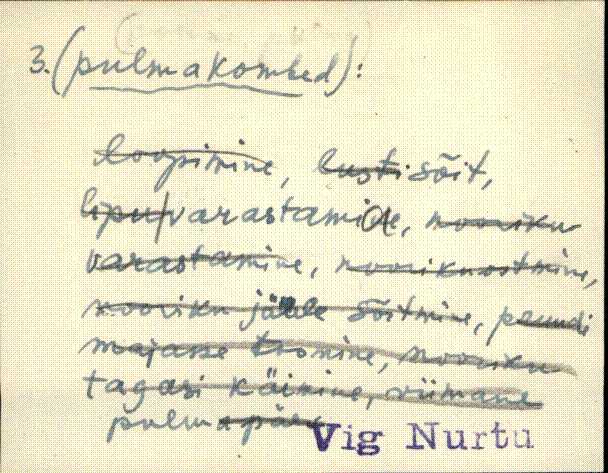 3. (pulmakombed):
loopimine, lusti sõit,
lipu/varastamine, nooriku
varastamine, nooriku ostmine,
nooriku järele sõitmine, peiu
majasse toomine, nooriku
tagasi käimine, viimane
pulmapäev
Vig Nurtu